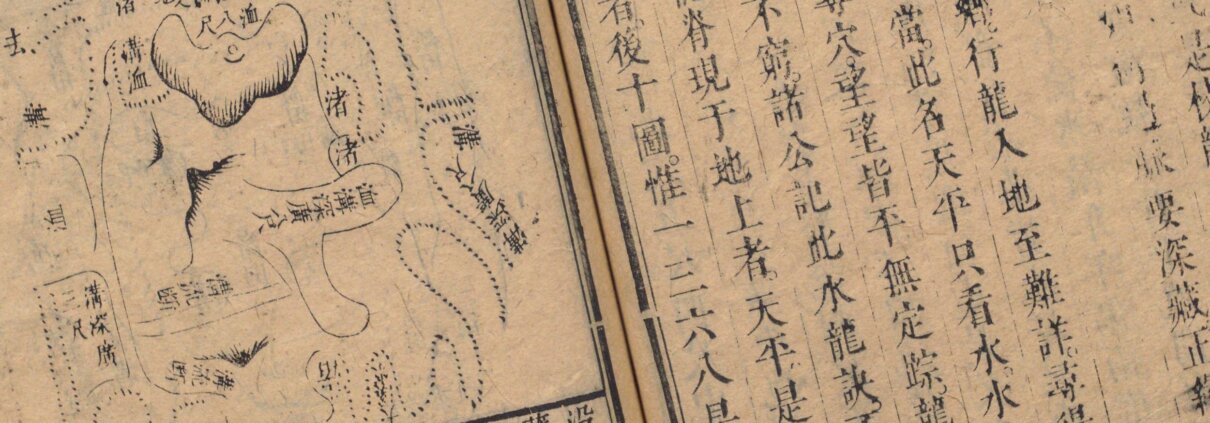 脈要深藏正
行龍入地至難詳。尋得
當。此名天平只看水。水
穴。望望皆平無定踪。龍
不窮。諸公記此水龍訣。
脊現于地上者。天平是
者。後十圖。惟一三六八是
溝
深廣
渚
渚
洫溝深廣
洫八尺
溝洫
溝流斷
溝深廣
尺
洫
溝